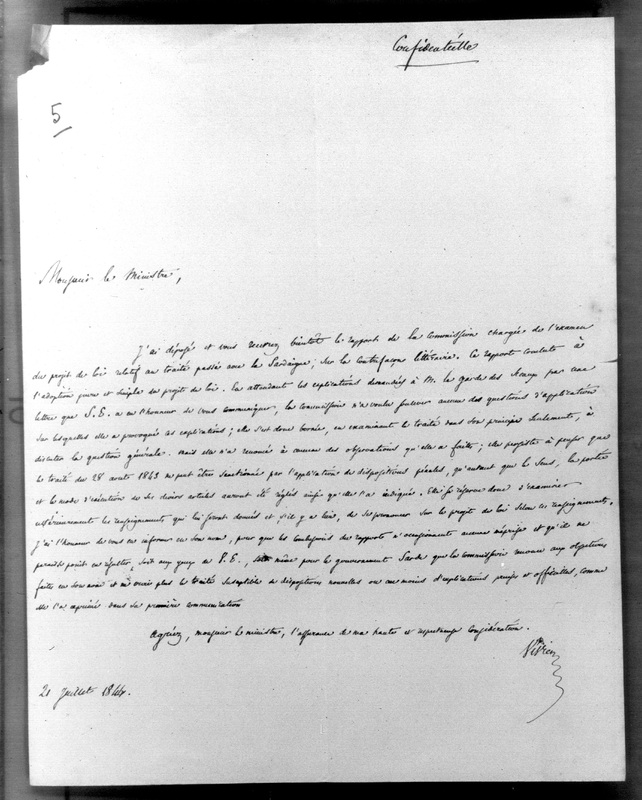 Confidentielle
5
Monsieur le Ministre,
J'ai déposé et vous recevrez bientôt le rapport de la Commission chargée de l'examen
du projet de loi relatif au traité passé avec la Sardaigne, sur la contrefaçon littéraire. Ce rapport conclut à
l'adoption pure et simple du projet de loi. En attendant les explications demandées à M. le garde des Sceaux par une
lettre que V. E. a eu l'honneur de vous communiquer, la commission n'a voulu soulever aucune des questions d'application
sur lesquelles elle a provoqué ces explications ; elle s'est donc bornée, en examinant le traité dans son principe seulement, à
discuter la question générale. Mais elle n'a renoncé à aucune des observations qu'elle a faites ; elle persiste à penser que
le traité du 28 août 1843 ne peut être sanctionné par l'application de dispositions pénales, qu'autant que le sens, la portée
et le mode d'exécution de ses divers articles auront été réglés ainsi qu'elle l'a indiqué. Elle se réserve donc d'examiner
ultérieurement les renseignements qui lui seront donnés et s'il y a lieu, de se prononcer sur le projet de loi selon ces renseignements.
J'ai l'honneur de vous en informer en son nom, pour que les conclusions du rapport n'occasionnent aucune méprise et qu'il ne
paraisse point en résulter, soit aux yeux de V. E., soit même pour le gouvernement Sarde que la commission renonce aux objections
faites en son nom et ne croie plus le traité susceptible de dispositions nouvelles ou au moins d'explications précises et officielles, comme
elle l'a exprimé dans sa première communication
Agréez, monsieur le ministre, l'assurance de ma haute et respectueuse considération.
Vivien
21 Juillet 1844.